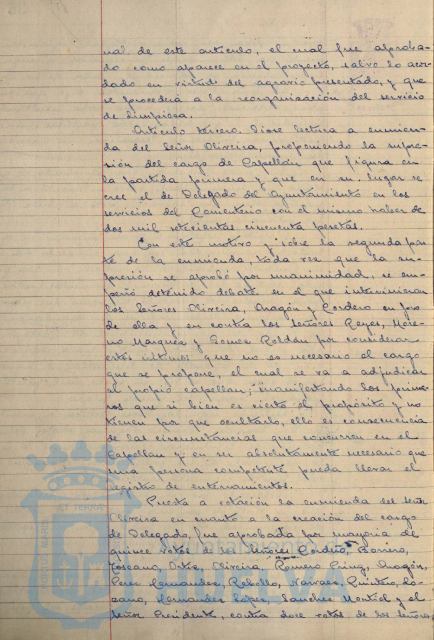 nal de este artículo, el cual fue aproba-
do como aparece en el proyecto, salvo lo acor-
dado en virtud del agravio presentado, y que
se procederá a la reorganización del servicio
de limpieza.
Artículo tercero. Diose lectura a enmien-
da del Señor Oliveira, proponiendo la supre-
sión del cargo de Capellán que figura en
la partida primera y que en su lugar se
cree el de Delegado del Ayuntamiento en los
servicios del Cementerio con el mismo haber de
dos mil setecientas cincuenta pesetas.
Con este motivo y sobre la segunda par-
te de la enmienda, toda vez que la su-
presión se aprobó por unanimidad, se em-
peñó detenido debate en el que intervinieron
los Señores Oliveira, Aragón y Cordero en pro
de ella y en contra los Señores Reyes, More-
no Marquez y Gomez Roldán por considerar
estos últimos que no es necesario el cargo
que se propone, el cual se va a adjudicar
al propio capellan; manifestando los prime-
ros que si bien es cierto el propósito y no
tienen por que ocultarlo, ello es consecuencia
de las circunstancias que concurren en el
Capellan y en ser absolutamente necesario que
una persona competente pueda llevar el
registro de enterramientos.
Puesta a votación la enmienda del Señor
Oliveira en cuanto a la creación del cargo
de Delegado, fue aprobada por mayoría de
quince votos de los Señores Cordero, Barrero,
Toscano, Ortiz, Oliveira, Romero, Aragón,
Perez Hernandez, Rebollo, Narvaez, Quintero, Lo-
zano, Hernandez López, Sanchez Montiel y el
Señor Presidente, contra doce votos de los señores
PORTUS MARIS
ET TERRAE